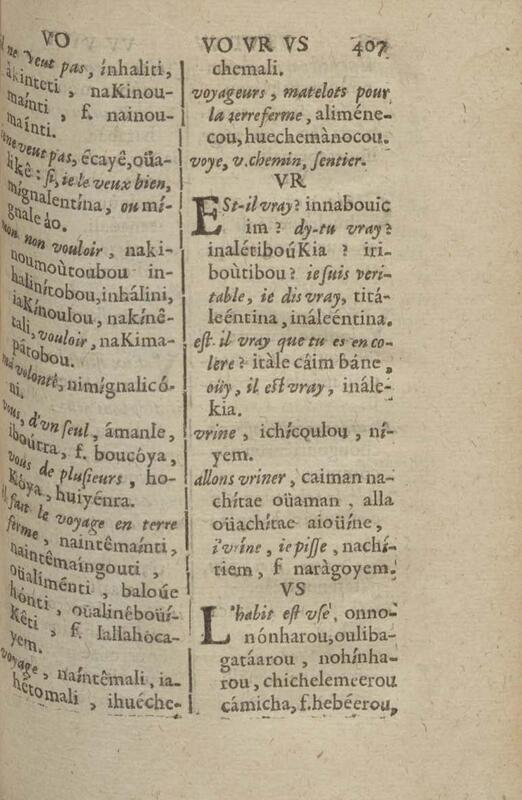 VO
VO VR VS 407
ne veut pas, ínhaliti,
àkinteti, naKinou-
maínti, f. nainou-
maínti.
ne veut pas, écayê, oüa-
likê: si, ie le veux bien,
mígnalentína, ou mí-
gnale áo.
non vouloir, naki-
noumoùtoubou in-
halinítobou, inhálini,
iaKínoulou, nakínê-
tali, vouloir, naKima-
pátobou.
ma volonté, nimígnalicó-
ni.
vous, d'vn seul, ámanle,
iboúrra, f. boucóya,
vous de plusieurs, ho-
Kóya, huiyénra.
il fait le voyage en terre
ferme, naintêmaínti,
naintêmaíngouti,
oüaliménti, baloúe
hónti, oüalinêboüí-
Kêti, f. Iallahoca-
yem.
voyage, naíntêmali, ia-
hêtomali, ihuéche-
chemali.
voyageurs, matelots pour
la terreferme, aliméne-
cou, huechemànocou.
voye, v. chemin, sentier.
VR
ESt-il vray? innabouic
im? dy-tu vray?
inalétiboúKia? iri-
boùtibou? ie suis veri-
table, ie dis vray, titá-
leéntina, ináleéntina.
est-il vray que tu es en co-
lere? itàle cáim báne,
oüy, il est vray, inále-
kia.
vrine, ichícoulou, ní-
yem.
allons vriner, caiman na-
chítae oüaman, alla
oüachítae aioüíne,
i'vrine, ie pisse, nachí-
tiem, f naràgoyem.
VS
L'habit est vsé, onno-
nónharou, ouliba-
gatáarou, nohínha-
rou, chichelemeerou
cámicha, f. hebéerou,